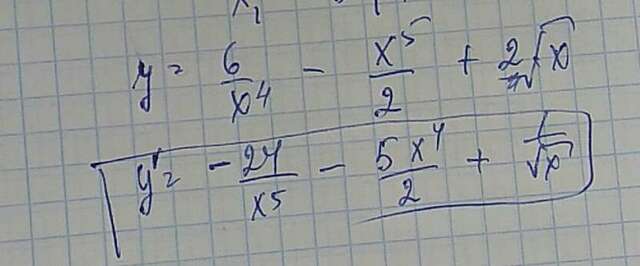 y = 6/x⁴ - x⁵/2 + 2√x
y' = - 24/x⁵ - 5x⁴/2 + 1/√x